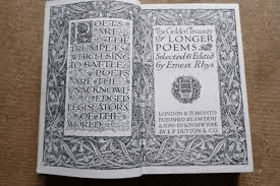 POETS
ARE
THE
TRUMPETS
WHICH SING
TO BATTLE
POETS
ARE THE
UNACKNOWL
EDGED
LEGISLATORS
OF THE
WORLD
The Golden Treasury
of LONGER
POEMS
Selected & Edited
by Ernest Rhys
LONDON & TORONTO
PUBLISHED BY J·M·DENT
& SONS LTD & IN NEW YORK
BY E·P·DUTTON & CO